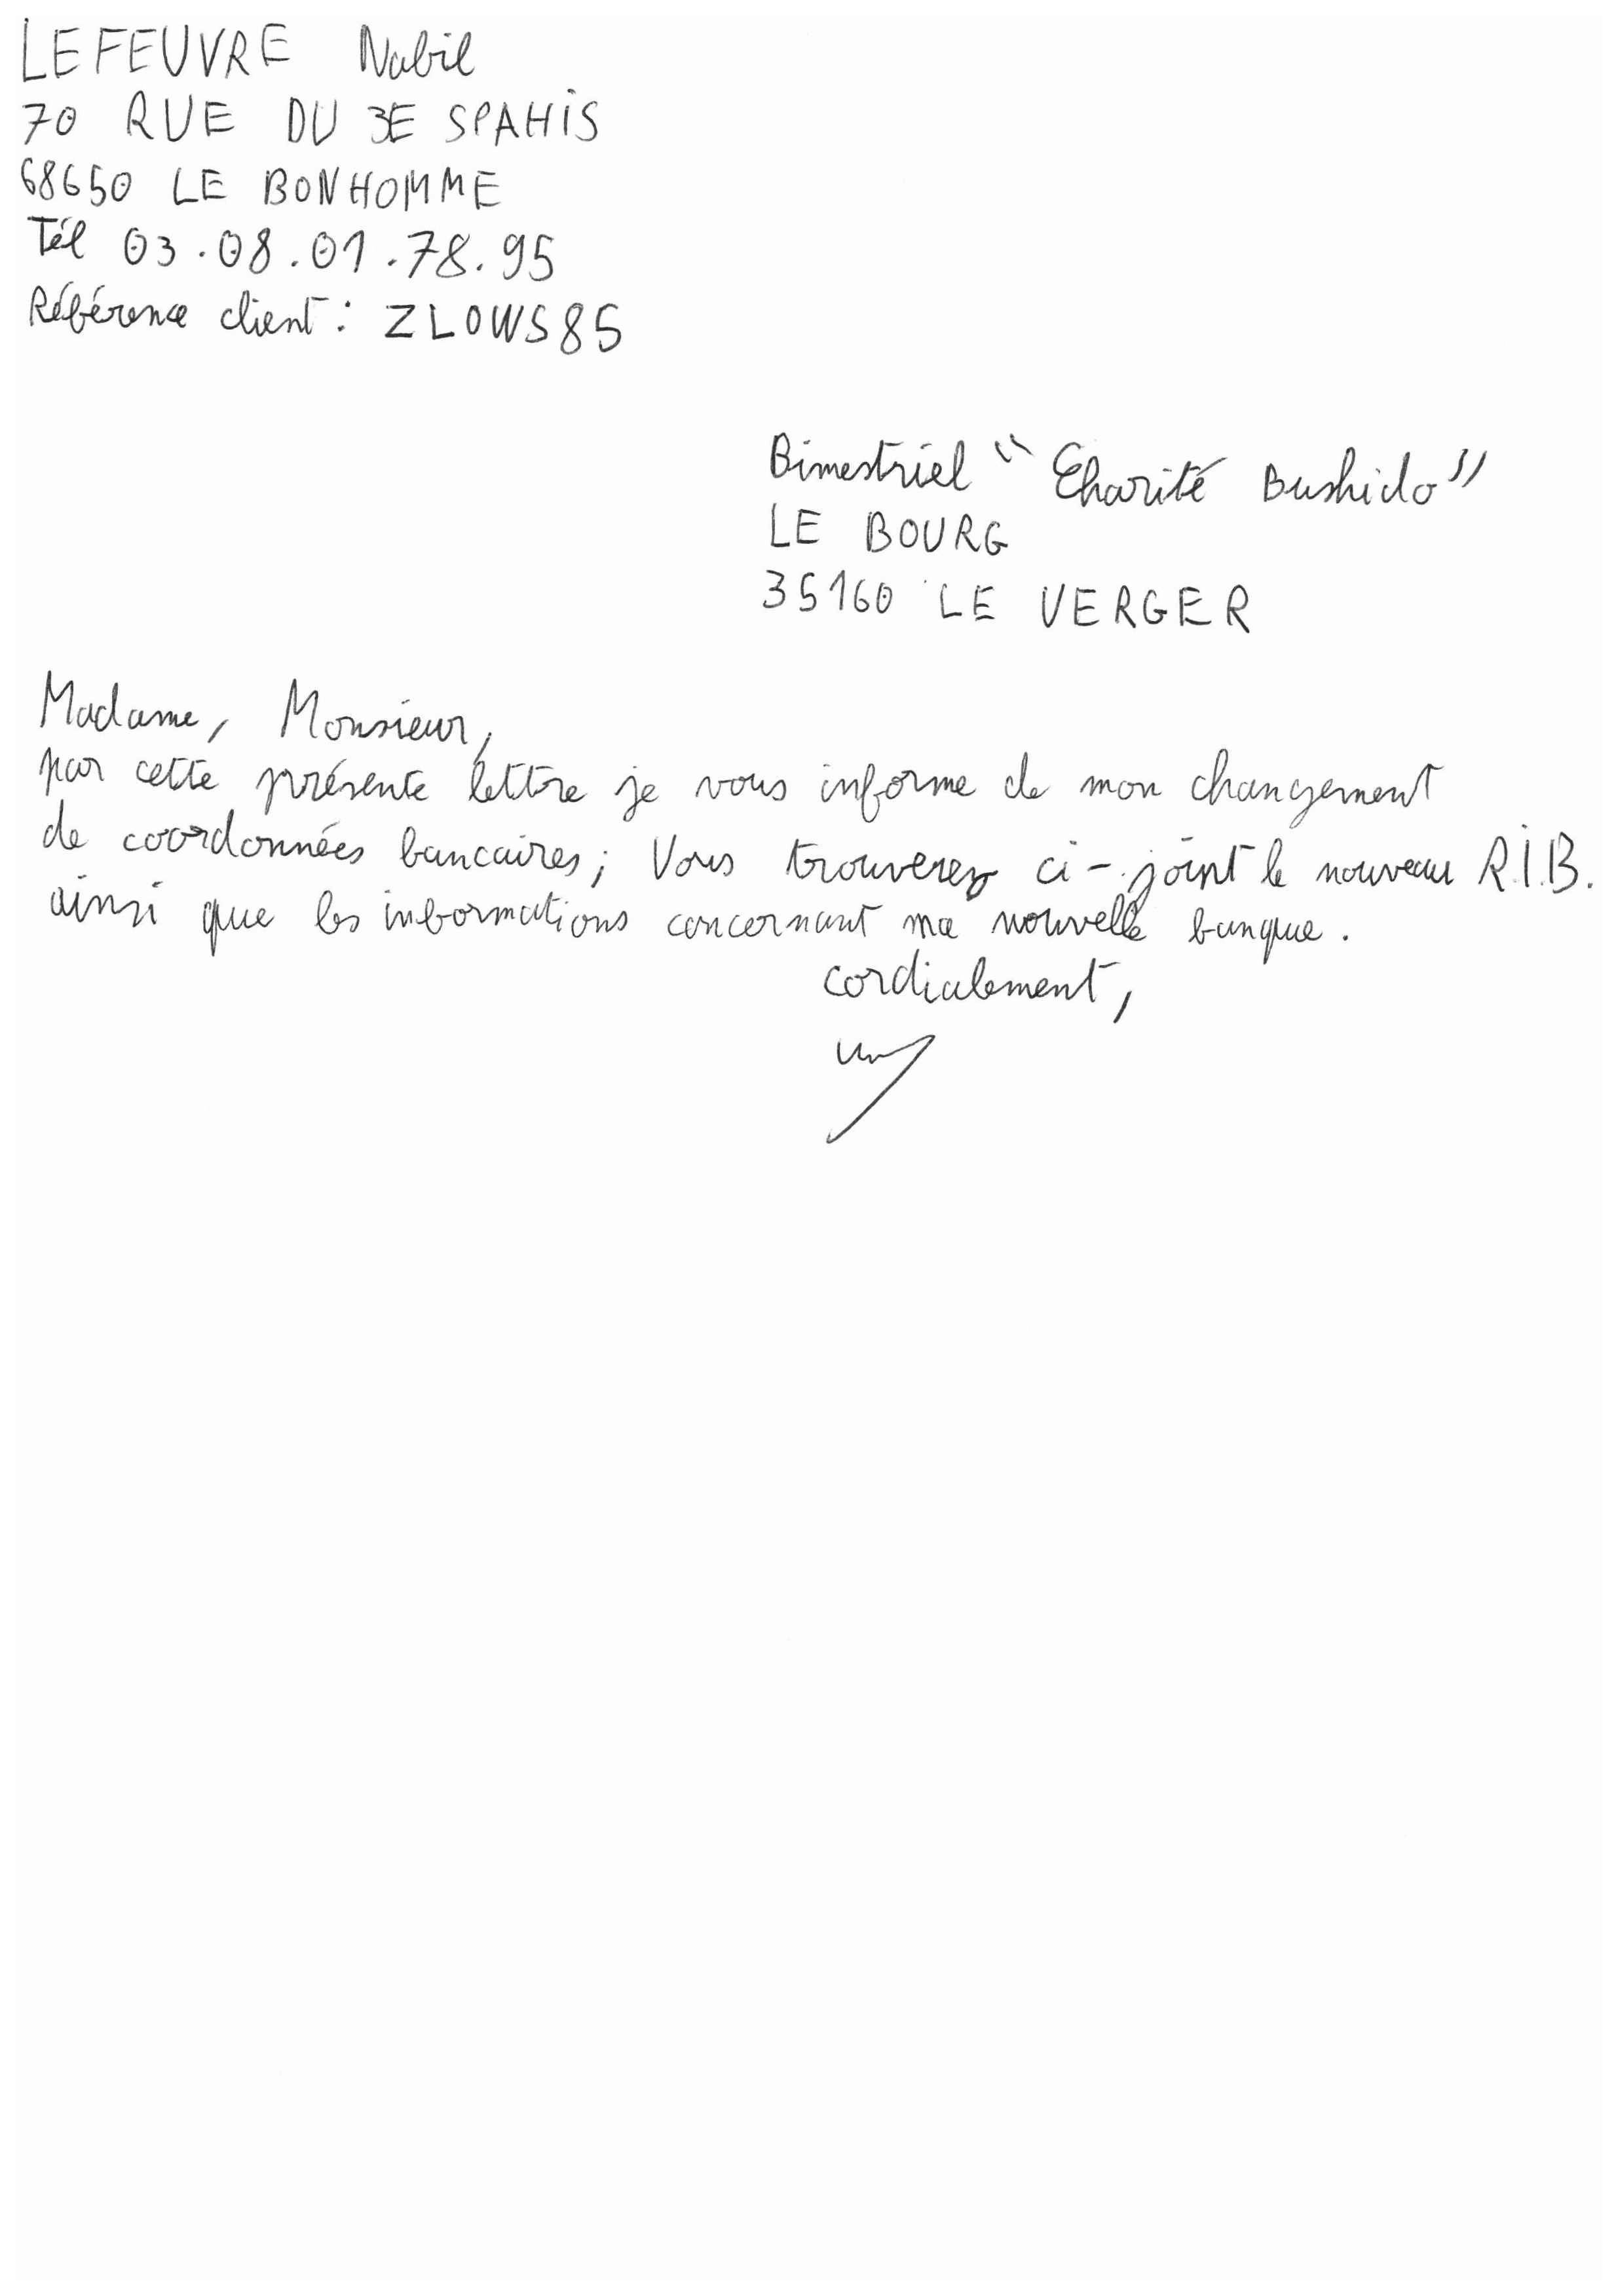 LEFEUVRE Nabil
70 RUE DU 3E SPAHIS
68650 LE BONHOMME
Tél 03.08.01.78.95
Référence client : ZLOWS85
Bimestriel "Charité Bushido"
LE BOURG
35160 LE VERGER
Madame, Monsieur,
par cette présente lettre je vous informe de mon changement
de coordonnées bancaires; Vous trouverez ci-joint le nouveau R.I.B.
ainsi que les informations concernant ma nouvelle banque.
cordialement,